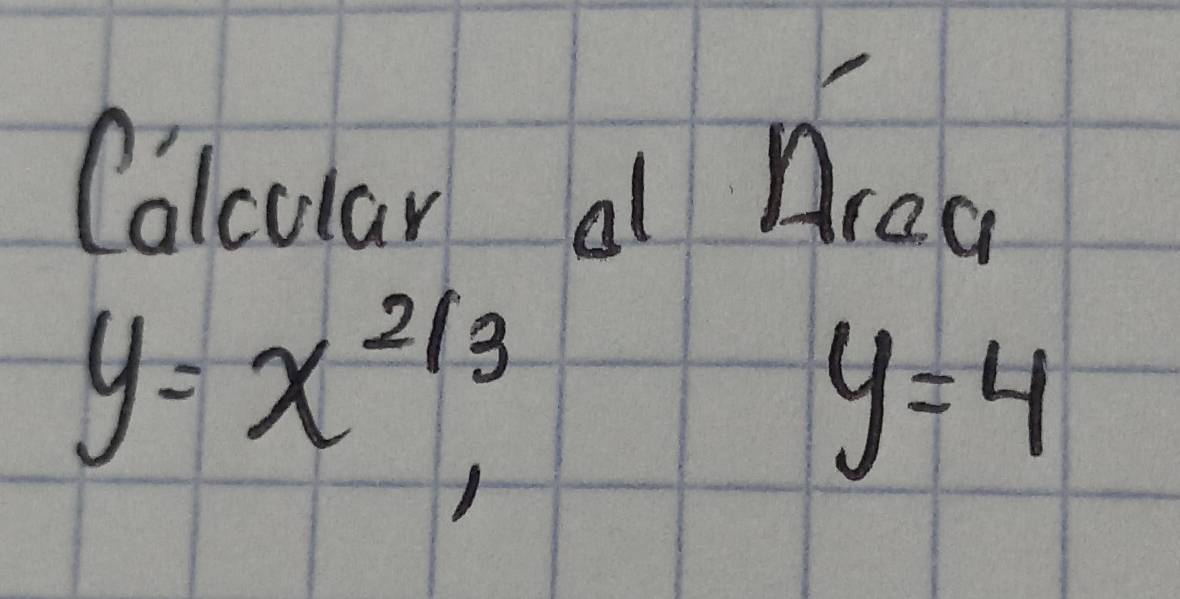 Cálcular el Área
y = x^2/3, y = 4